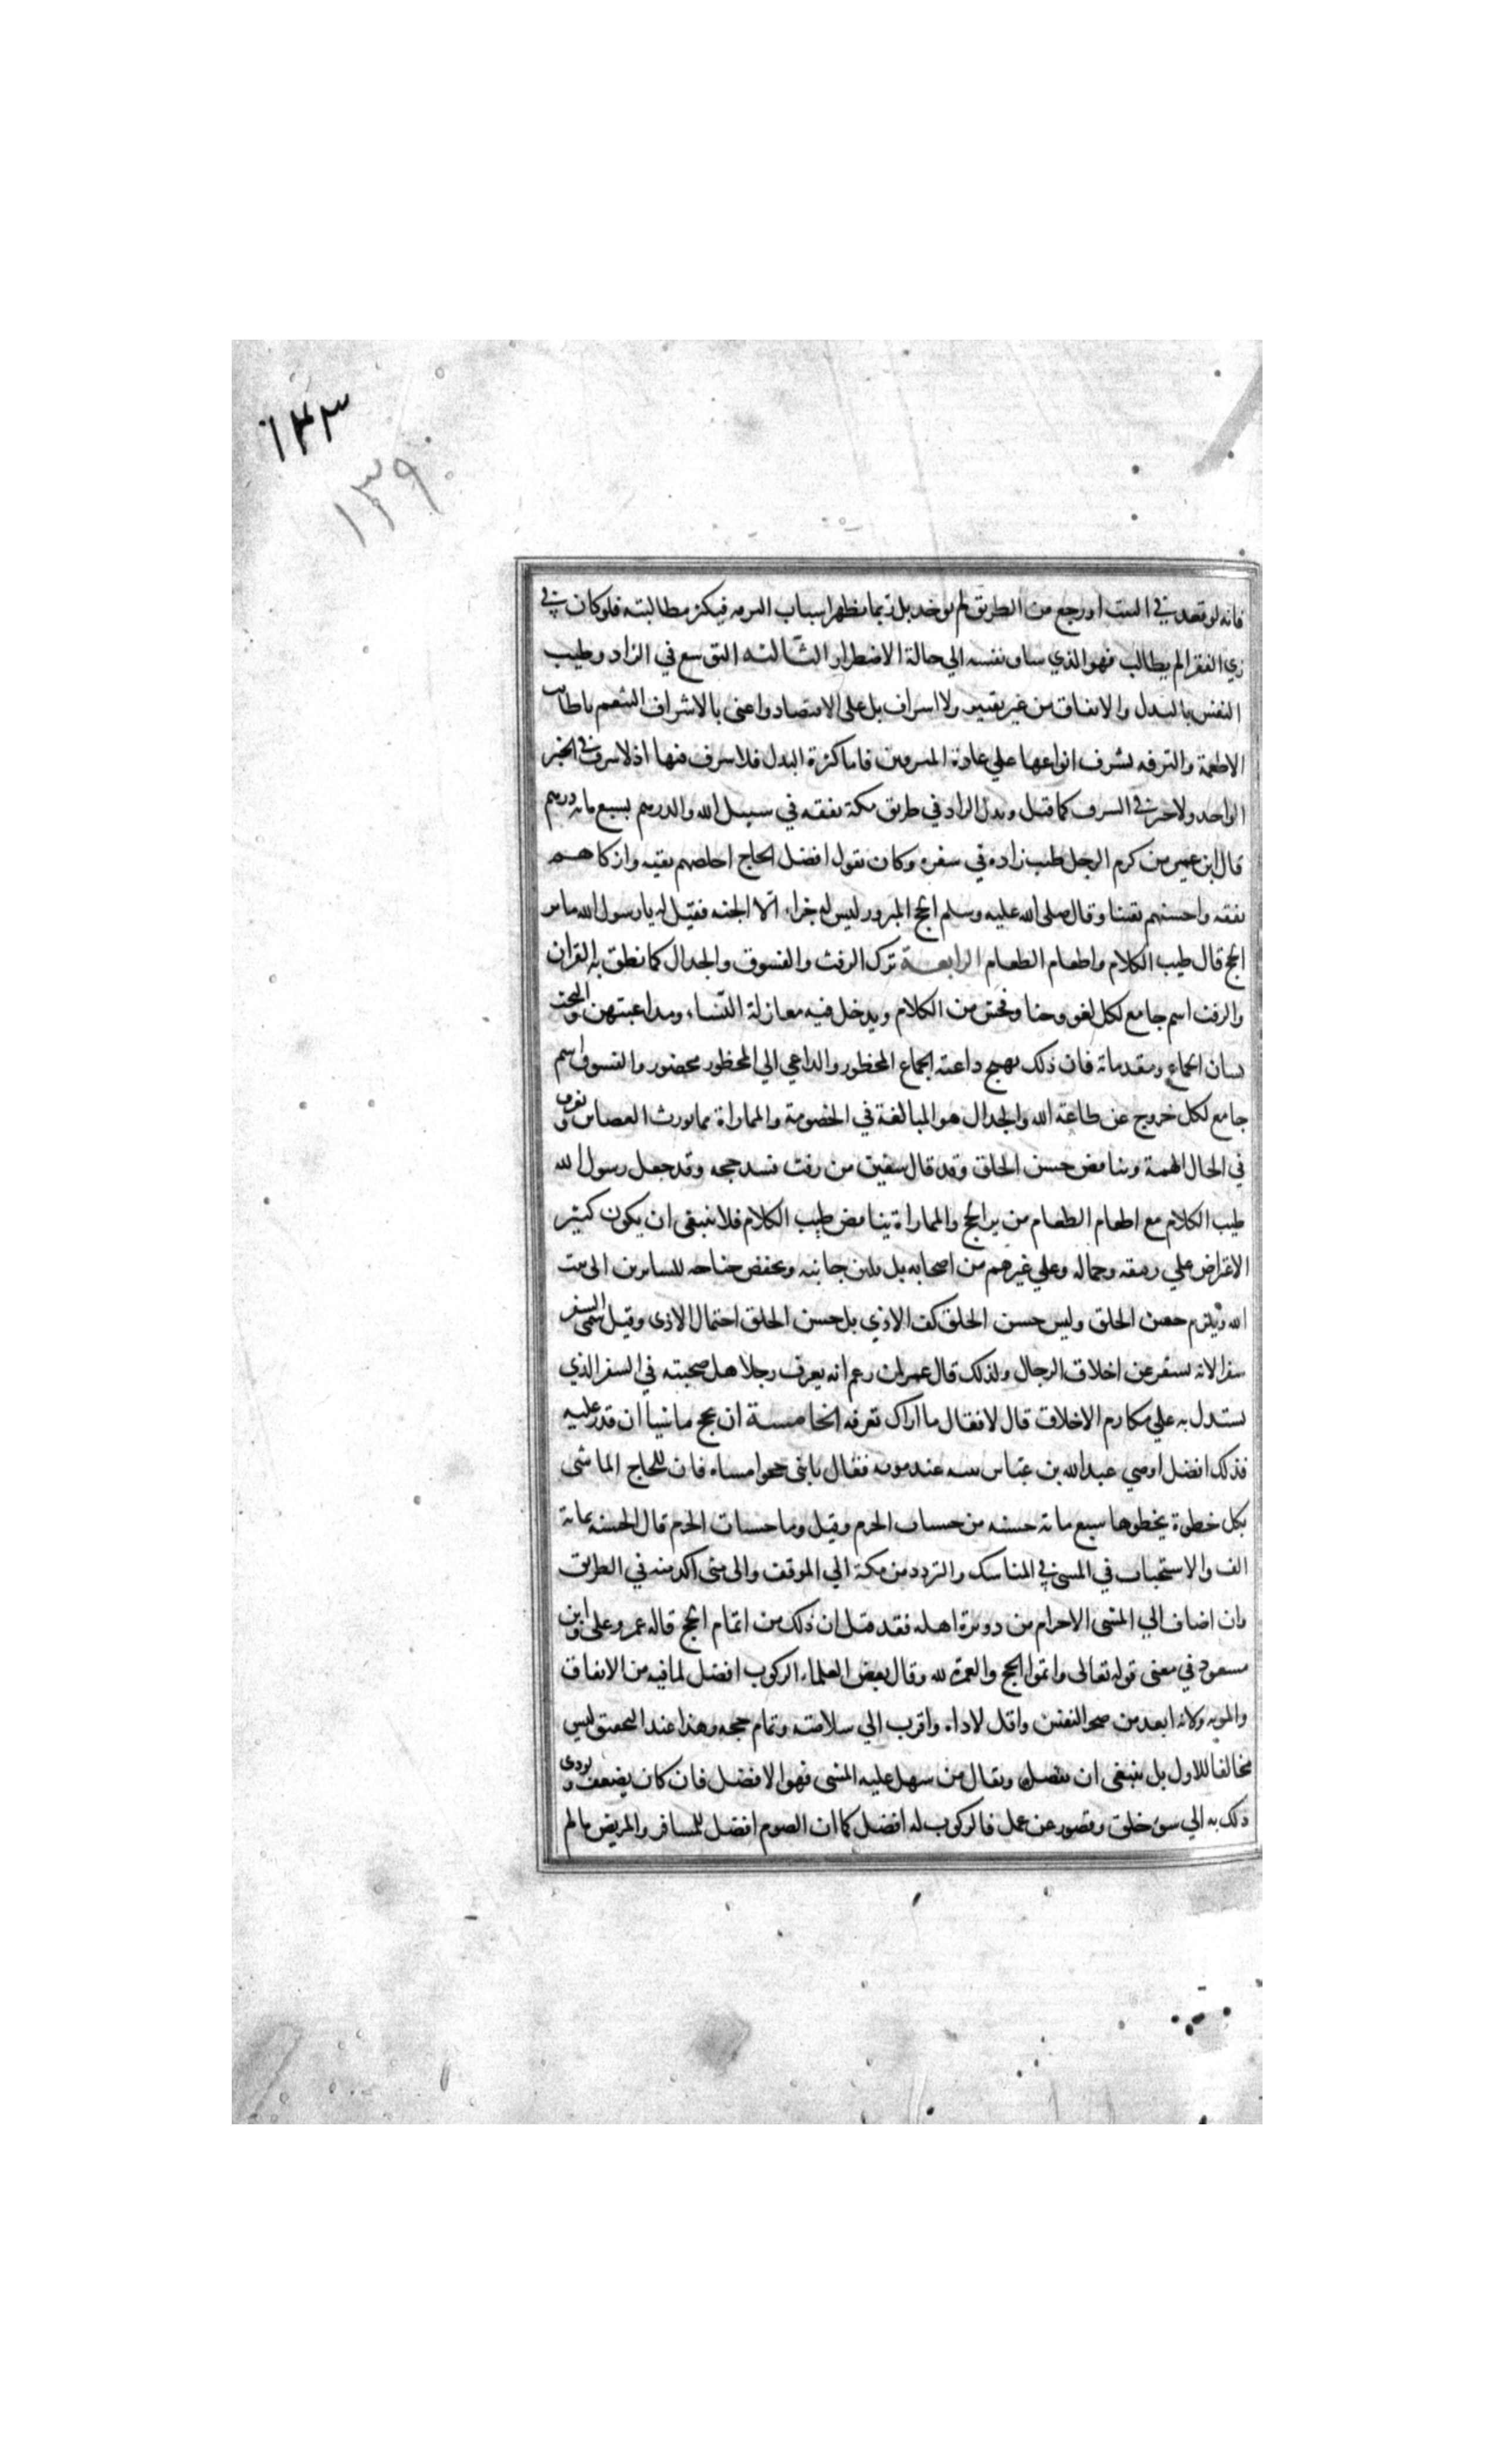 ١٣٣
١٣٩
فانه لو قعد في البيت او رجع من الطريق لم يوخذ بل ربما يظهر اسباب الترفه فيكثر مطالبته فلو كان في
زي الفقرا لم يطالب فهو الذي ساق نفسه الي حالة الاضطرار الثالثة التوسع في الزاد وطيب
النفس بالبدل والانفاق من غير تقتير ولا اسراف بل على الاقتصاد واعنى بالاشراف التنعم باطايب
الاطعمة والترفه بشرف انواعها علي عادة المترفين فاما كثرة البدل فلا سرف فيها اذ لا سرف في الخير
الواحد ولا خير في السرف كما قيل وبدل الزاد في طريق مكة نفقه في سبيل الله والدرهم بسبع مايه درهم
قال ابن عمر من كرم الرجل طيب زاده في سفره وكان يقول افضل الحاج اخلصهم نية وازكاهم
نفقه واحسنهم يقينا وقال صلى الله عليه وسلم الحج المبرور ليس له جزاء الا الجنه فقيل له يا رسول الله ما بر
الحج قال طيب الكلام واطعام الطعام الرابعة ترك الرفث والفسوق والجدال كما نطق به القران
والرفث اسم جامع لكل لغو وخنا وفحش من الكلام ويدخل فيه مغازلة النساء ومداعبتهن والتحدث
بسان الجماع ومقدماته فان ذلك يهيج داعية الجماع المحظور والداعي الي المحظور محضور والفسوق اسم
جامع لكل خروج عن طاعة الله والجدال هو المبالغة في الخصومة والمماراة مما يورث الضغاين ويفرق
في الحال الهمة ويناقض حسن الخلق وقد قال سفين من رفث فسد حجه وقد جعل رسول الله
طيب الكلام مع اطعام الطعام من بر الحج والمماراة يناقض طيب الكلام فلا ينبغى ان يكون كثير
الاعتراض علي رفيقه وجماله وعلي غيرهم من اصحابه بل يلين جانبه ويخفض جناحه للسايرين الى بيت
الله ويلزم حسن الخلق وليس حسن الخلق كف الاذي بل حسن الخلق احتمال الاذى وقيل سمى السفر
سفرا لانه يسفر عن اخلاق الرجال ولذلك قال عمر لمن زعم انه يعرف رجلا هل صحبته في السفر الذي
يستدل به علي مكارم الاخلاق قال لا فقال ما اراك تعرفه الخامسة ان يحج ماشيا ان قدر عليه
فذلك افضل اوصي عبد الله بن عباس بنيه عند موته فقال يا بنى حجوا مشاه فان للحاج الماشى
بكل خطوة يخطوها سبع مائة حسنه من حسنات الحرم وقيل وما حسنات الحرم قال الحسنه بمائة
الف والاستحباب في المشى في المناسك والتردد من مكة الي الموقف والى منى اكد منه في الطريق
وان اضاف الي المشى الاحرام من دويرة اهله فقد قيل ان ذلك من اتمام الحج قاله عمر وعلى وابن
مسعود في معنى قوله تعالى واتموا الحج والعمره لله وقال بعض العلماء الركوب افضل لما فيه من الانفاق
والمونه ولانه ابعد من ضجر النفس واقل لاذاه واقرب الي سلامته وتمام حجه وهذا عند التحقيق ليس
مخالفا للاول بل ينبغى ان يفصل ويقال من سهل عليه المشى فهو الافضل فان كان يضعف ويودى
ذلك به الي سوء خلق وقصور عن عمل فالركوب له افضل كما ان الصوم افضل للمسافر والمريض ما لم